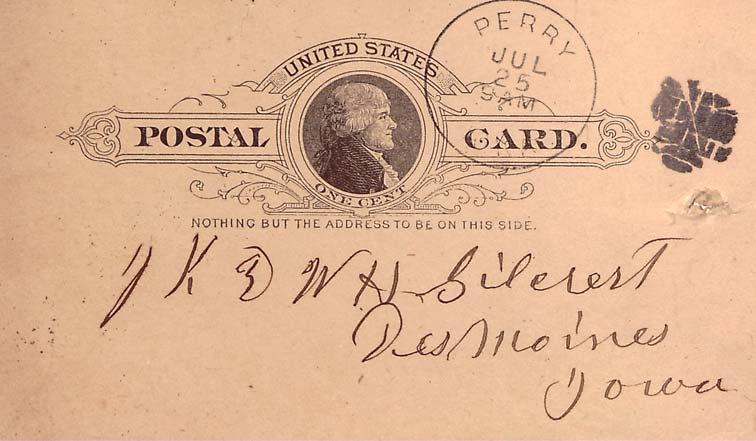 PERRY
JUL
25
9AM
UNITED STATES
POSTAL CARD.
ONE CENT
NOTHING BUT THE ADDRESS TO BE ON THIS SIDE.
J K & W H Gilcrest
Des Moines
Iowa